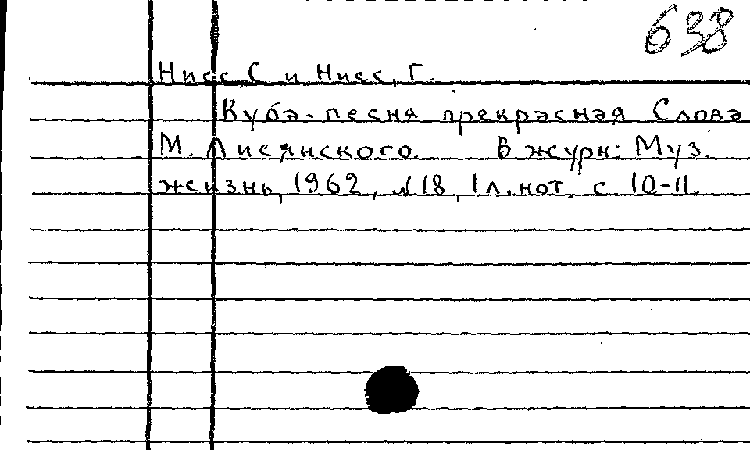 638
Нисс С и Нисс, Г.
Куба-песня прекрасная Слова
М. Лисянского. В журн: Муз.
жизнь, 1962, №18, 1л. нот. с 10-11.